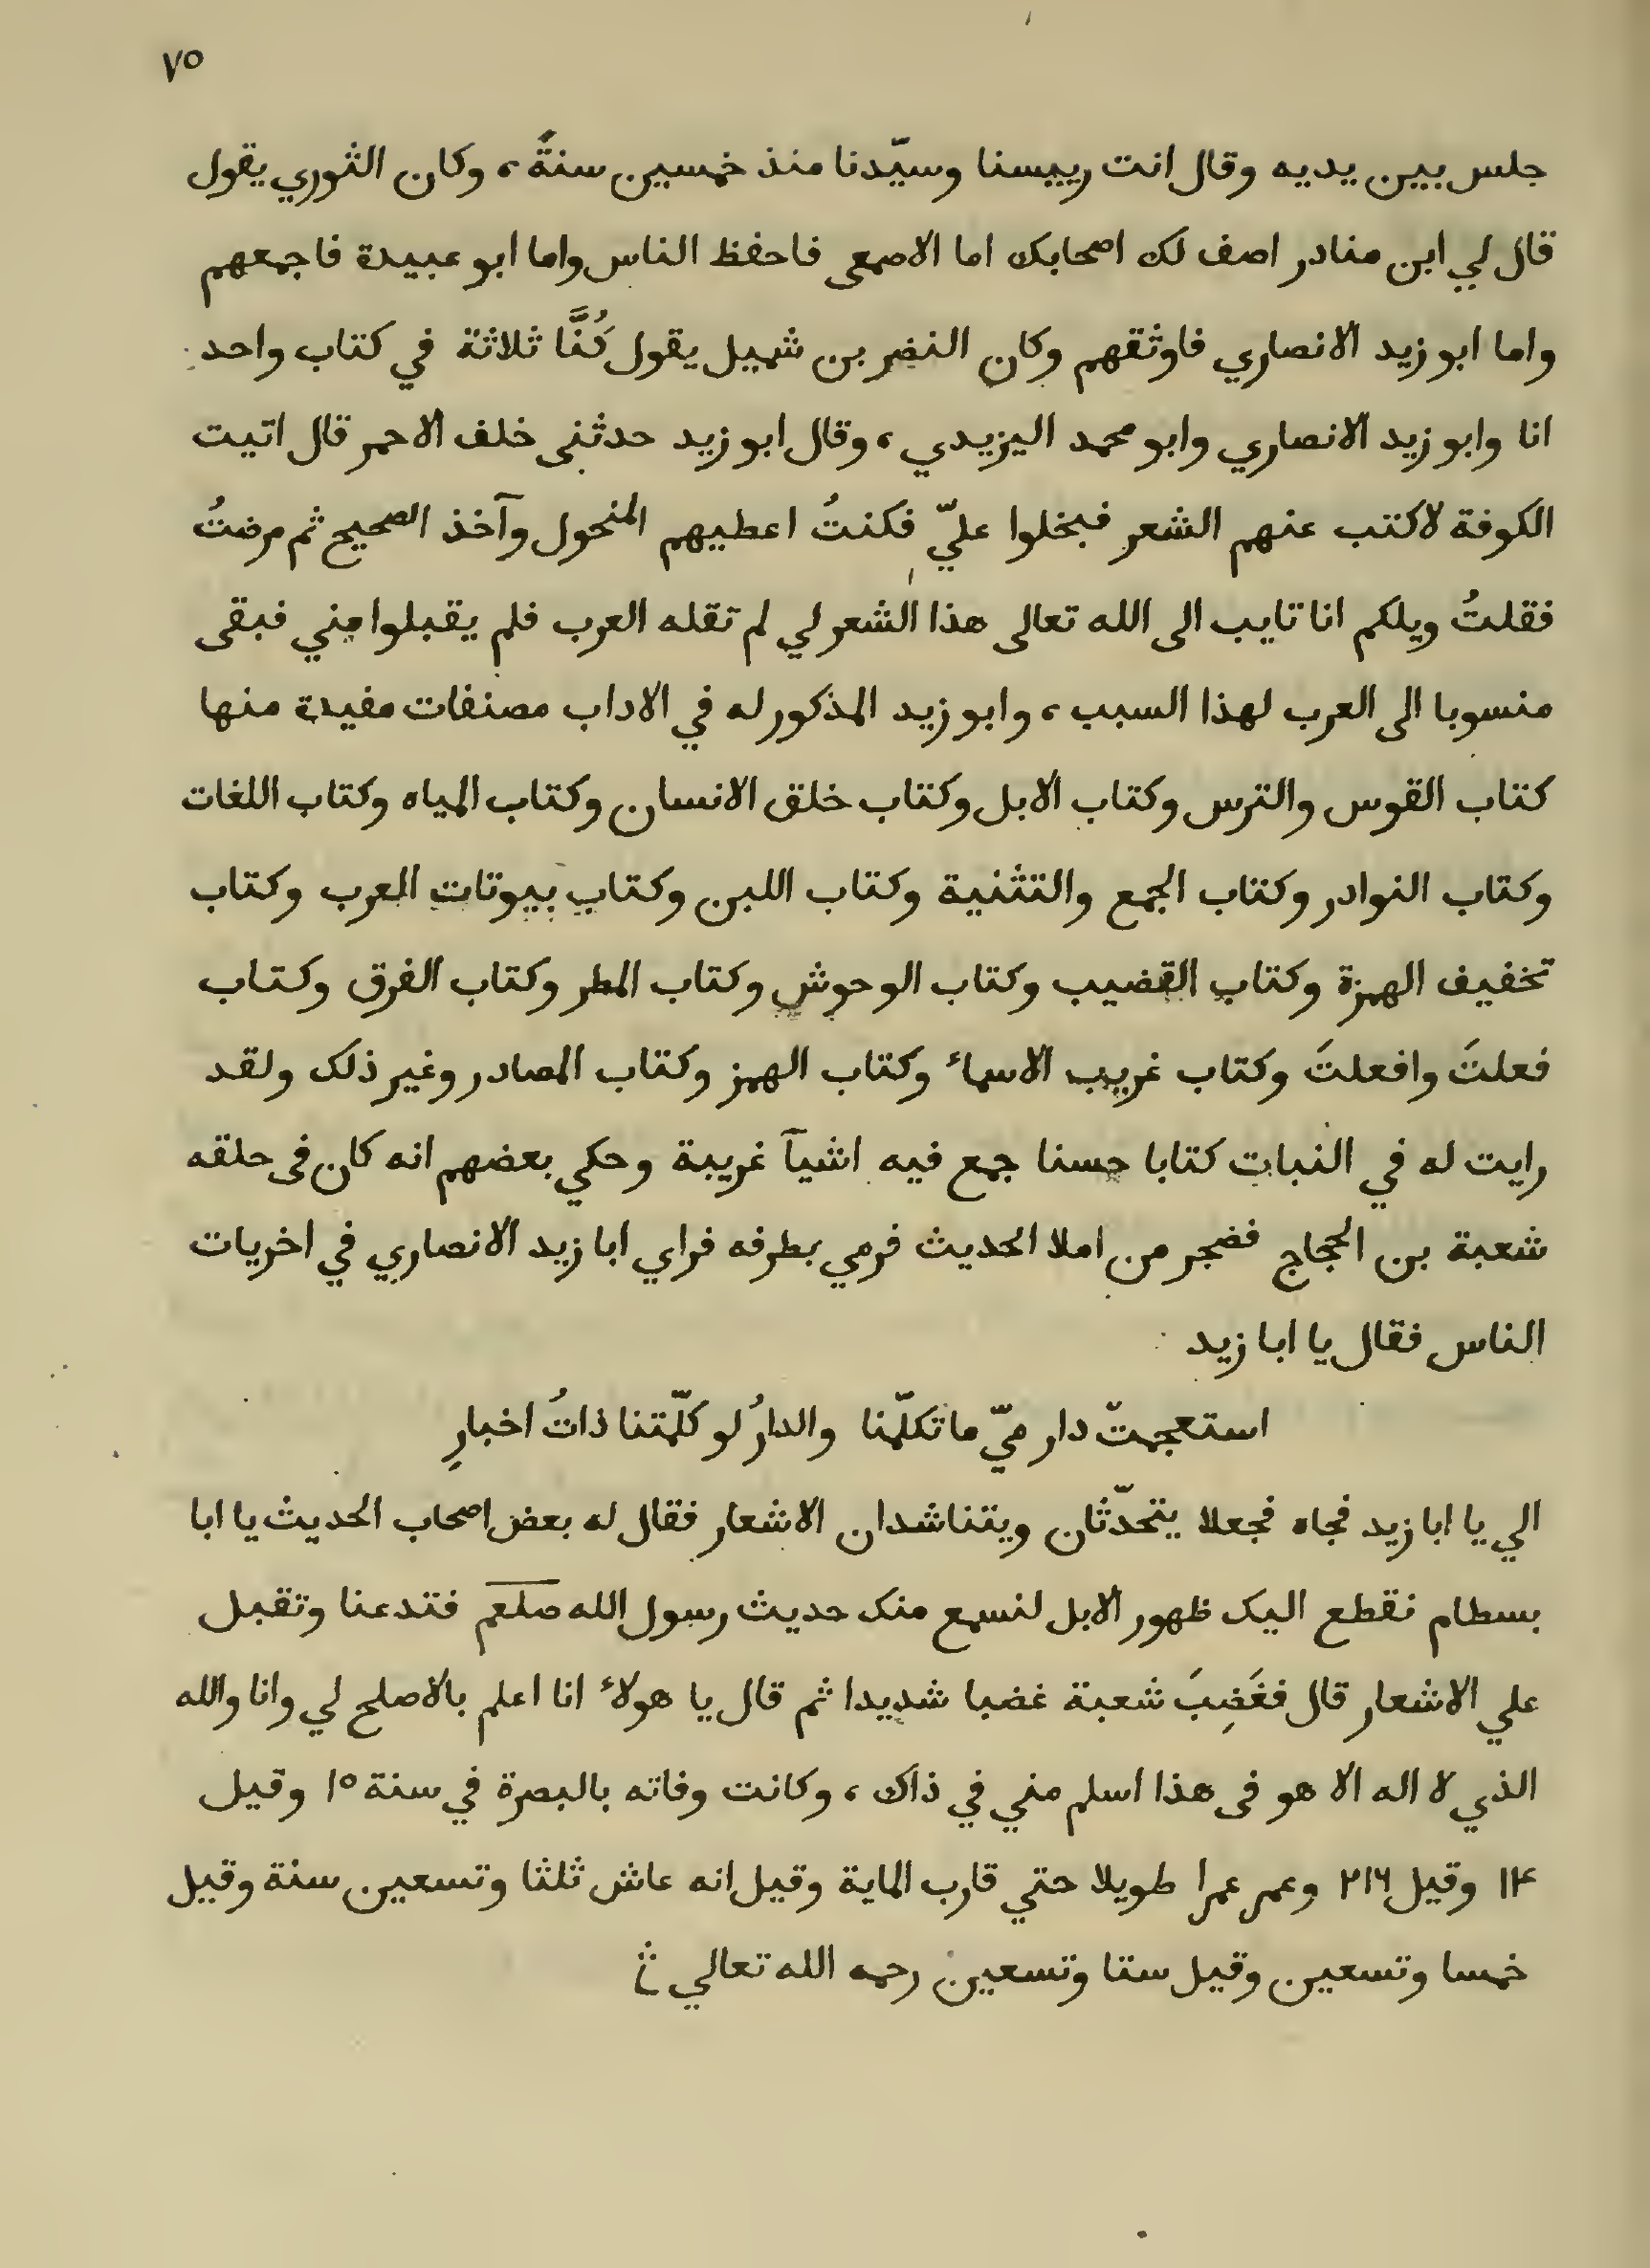 ٧٥
جلس بين يديه وقال انت رييسنا وسيّدنا منذ خمسين سنةً، وكان الثوري يقول
قال لي ابن منادر اصف لك اصحابك اما الاصمعى فاحفظ الناس واما ابو عبيدة فاجمعهم
واما ابو زيد الانصاري فاوثقهم وكان النضر بن شميل يقول كُنَّا ثلاثة في كتاب واحد
انا وابو زيد الانصاري وابو محمد اليزيدي، وقال ابو زيد حدثنى خلف الاحمر قال اتيت
الكوفة لاكتب عنهم الشعر فبخلوا عليّ فكنتُ اعطيهم المنحول وآخذ الصحيح ثم مرضتُ
فقلتُ ويلكم انا تايب الى الله تعالى هذا الشعر لي لم تقله العرب فلم يقبلوا مني فبقى
منسوبا الى العرب لهذا السبب، وابو زيد المذكور له في الاداب مصنفات مفيدة منها
كتاب القوس والترس وكتاب الابل وكتاب خلق الانسان وكتاب المياه وكتاب اللغات
وكتاب النوادر وكتاب الجمع والتثنية وكتاب اللبن وكتاب بيوتات العرب وكتاب
تخفيف الهمزة وكتاب القضيب وكتاب الوحوش وكتاب المطر وكتاب الفرق وكتاب
فعلتَ وافعلتَ وكتاب غريب الاسماء وكتاب الهمز وكتاب المصادر وغير ذلك ولقد
رايت له في النبات كتابا حسنا جمع فيه اشيآ غريبة وحكي بعضهم انه كان فى حلقه
شعبة بن الحجاج فضجر من املا الحديث فرمي بطرفه فراي ابا زيد الانصاري في اخريات
الناس فقال يا ابا زيد
استعجمتْ دار ميّ ما تكلّمنا والدارُ لو كلّمتنا ذاتُ اخبارِ
الي يا ابا زيد فجاه فجعلا يتحدّثان ويتناشدان الاشعار فقال له بعض اصحاب الحديث يا ابا
بسطام نقطع اليك ظهور الابل لنسمع منك حديث رسول الله صلعم فتدعنا وتقبل
علي الاشعار قال فغَضِبَ شعبة غضبا شديدا ثم قال يا هولاء انا اعلم بالاصلح لي وانا والله
الذي لا اله الا هو فى هذا اسلم مني في ذاك، وكانت وفاته بالبصرة في سنة ١٥ وقيل
١۴ وقيل ٢١٦ وعمر عمرا طويلا حتي قارب الماية وقيل انه عاش ثلثا وتسعين سنة وقيل
خمسا وتسعين وقيل ستا وتسعين رحمه الله تعالي